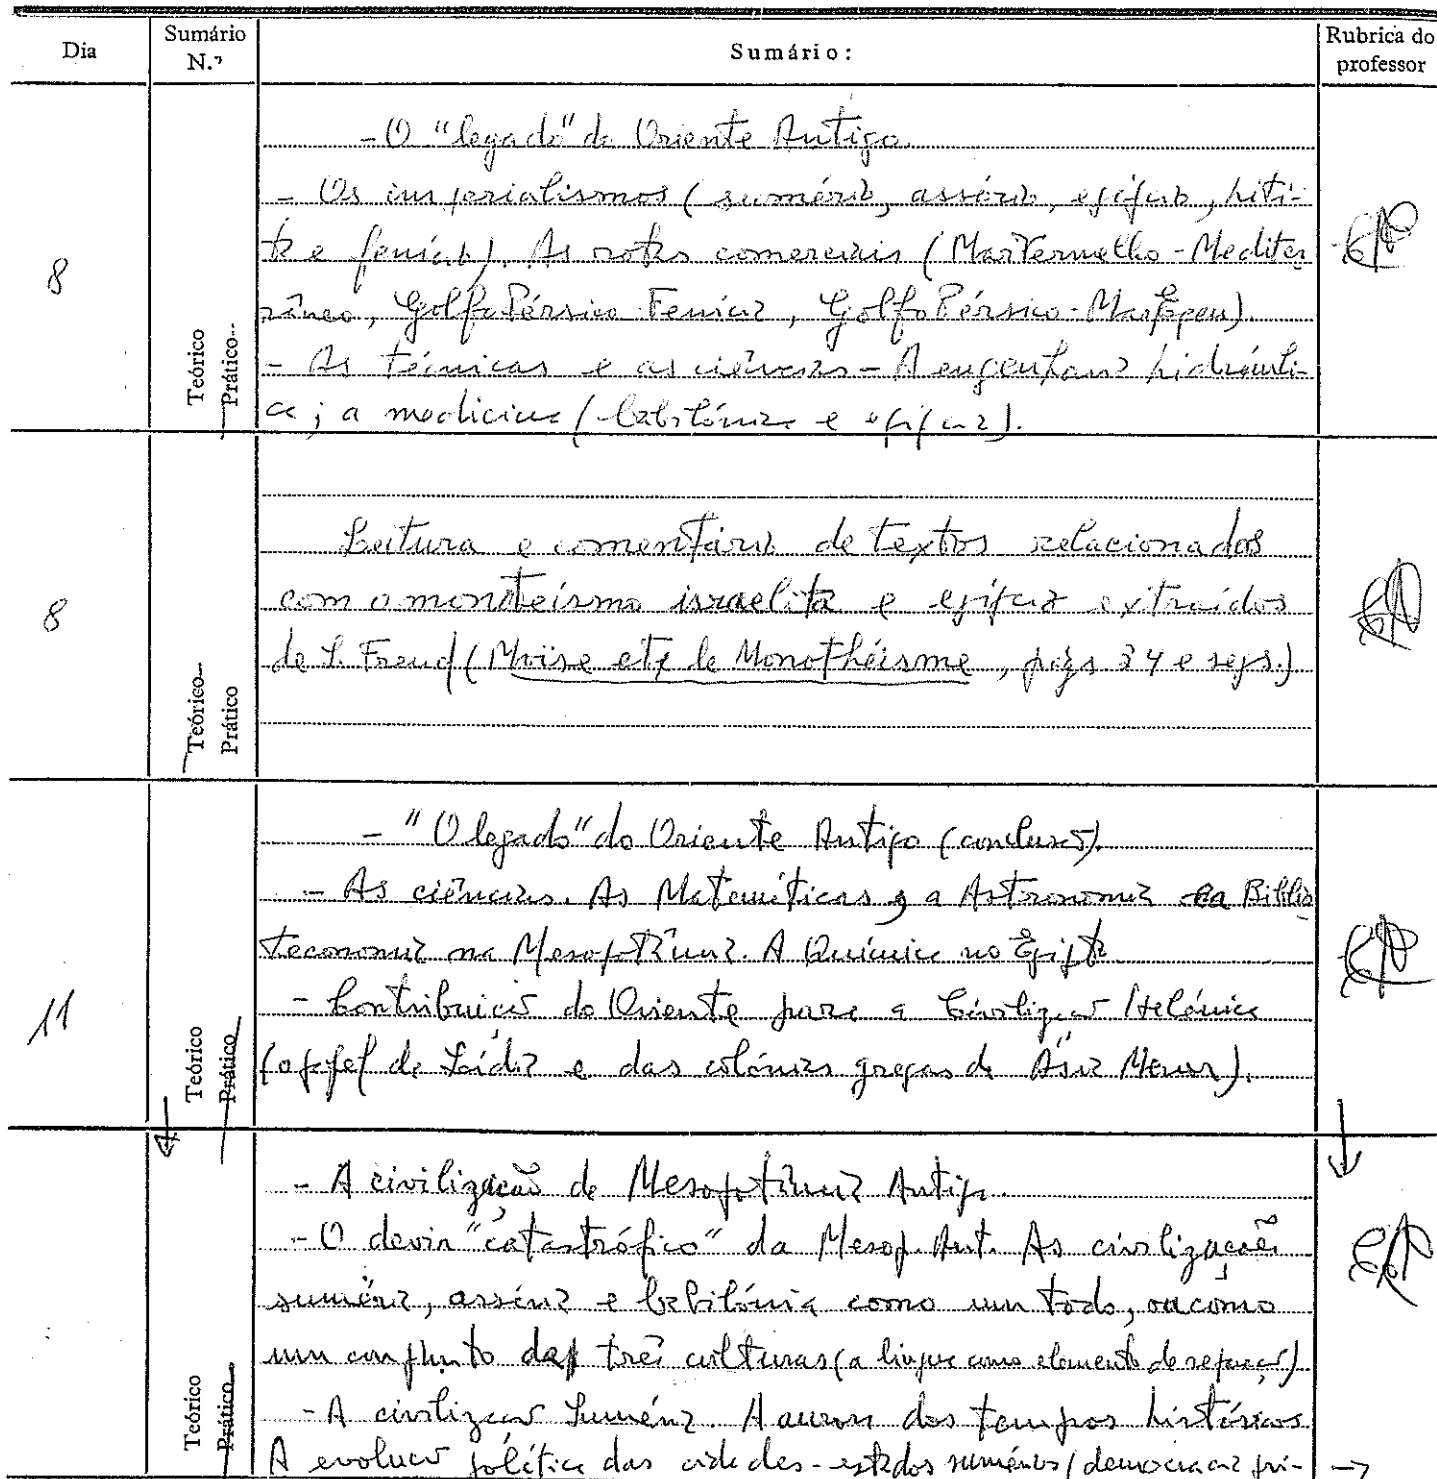 Dia
Sumário N.º
Sumário:
Rubrica do professor
8
Teórico
Prático
- O "legado" do Oriente Antigo.
- Os imperialismos (sumério, assírio, egípcio, hiti-
ta e fenício). As rotas comerciais (Mar Vermelho - Mediter
râneo, Golfo Pérsico Fenícia, Golfo Pérsico - Mar Egeu).
- As técnicas e as ciências - A engenharia hidráuli-
ca; a medicina (babilónica e egípcia).
8
Teórico
Prático
Leitura e comentário de textos relacionados
com o monoteísmo israelita e egípcio extraídos
de S. Freud (Moïse et le Monothéisme, págs 34 e segs.)
11
Teórico
Prático
- "O legado" do Oriente Antigo (conclusão).
- As ciências. As Matemáticas, a Astronomia e a Biblio
teconomia na Mesopotâmia. A Química no Egipto
- Contribuição do Oriente para a Civilização Helénica
(o papel da Lídia e das colónias gregas da Ásia Menor).
Teórico
Prático
- A civilização da Mesopotâmia Antiga.
- O devir "catastrófico" da Mesop. Ant. As civilizações
suméria, assíria e babilónia como um todo, ou como
um conjunto das três culturas (a língua como elemento de separação)
- A civilização Suméria. A aurora dos tempos históricos
A evolução política das cidades-estados sumérios (democracia pri-